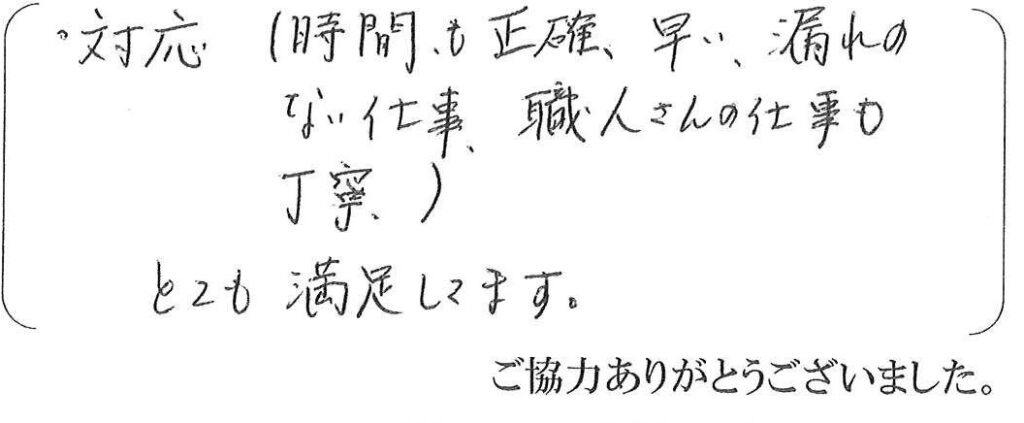 ・対応 (時間も正確、早い、漏れの
ない仕事、職人さんの仕事も
丁寧、)
とても満足してます。
ご協力ありがとうございました。